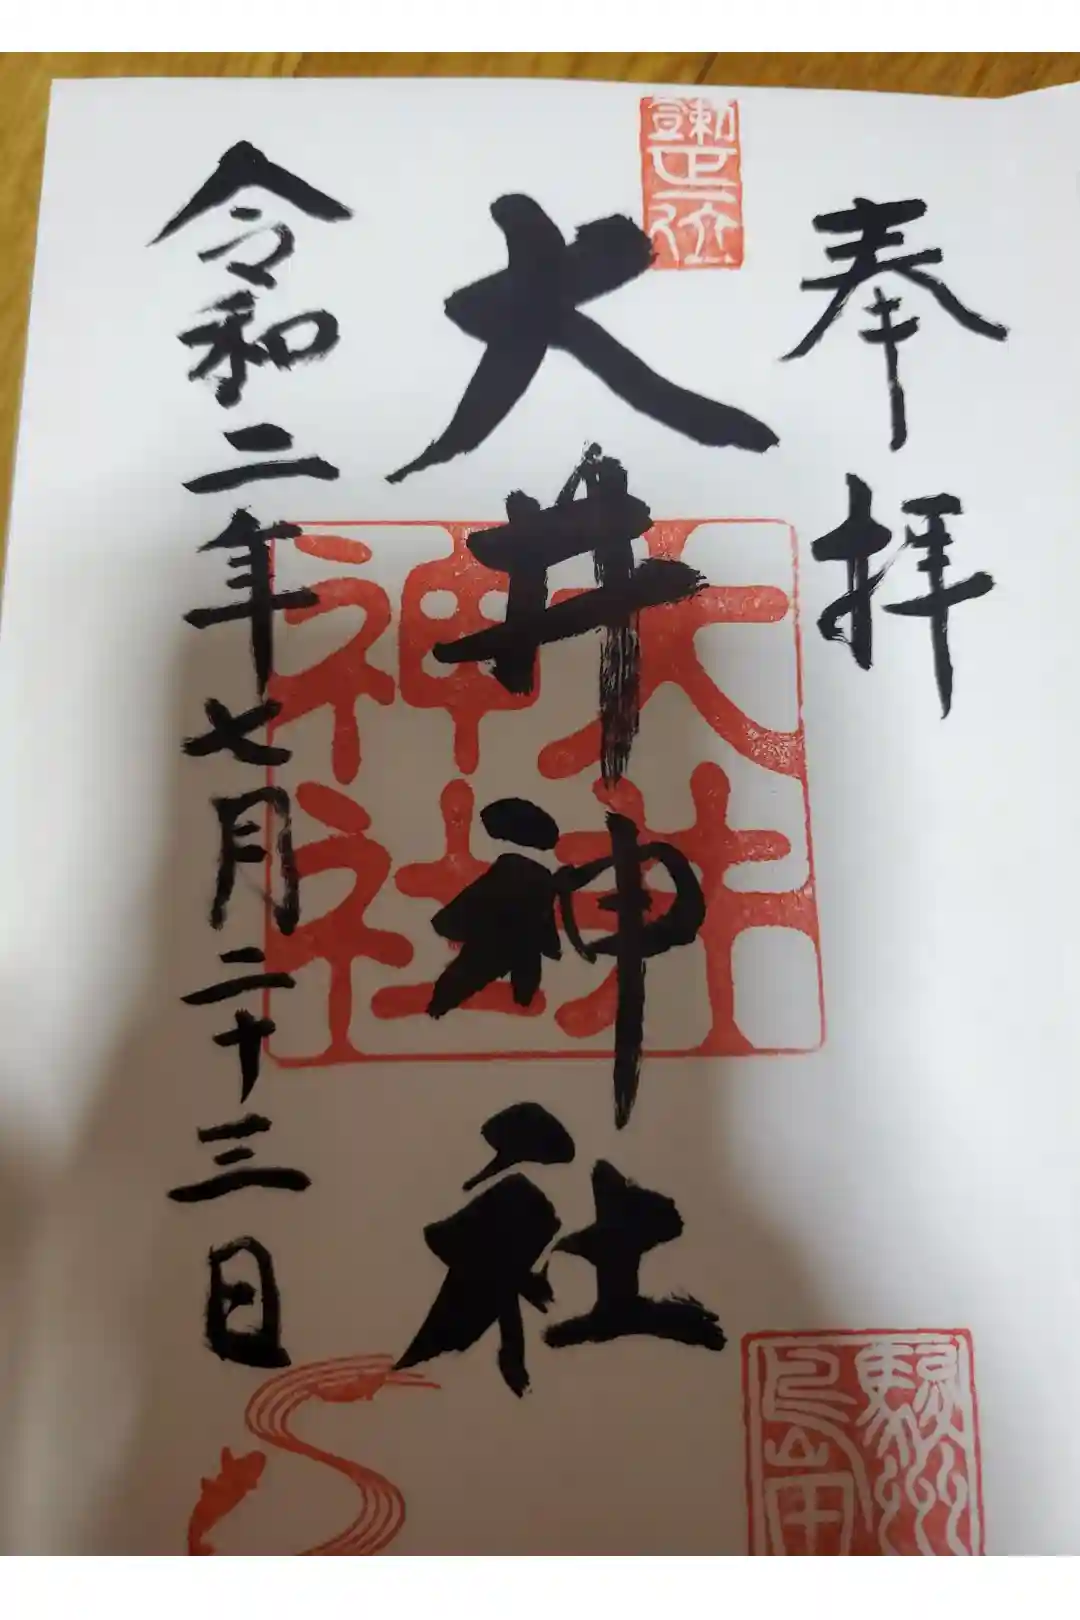 奉拝
勅宣
正一位
大井神社
大井神社
令和二年七月二十三日
駿州